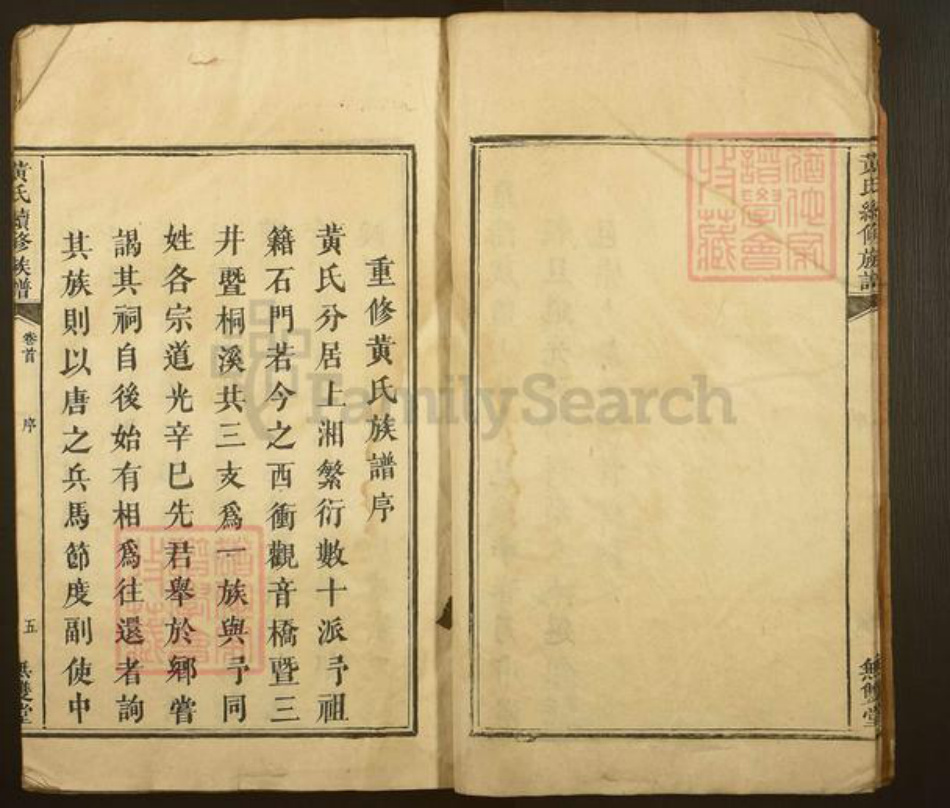 黃氏續修族譜
無雙堂
重修黃氏族譜序
黃氏分居上湘繁衍數十派予祖
籍石門若今之西衝觀音橋暨三
井暨桐溪共三支爲一族與予同
姓各宗道光辛巳先君舉於鄉嘗
謁其祠自後始有相爲往還者詢
其族則以唐之兵馬節度副使中
黃氏續修族譜
卷首
序
五
無雙堂
FamilySearch